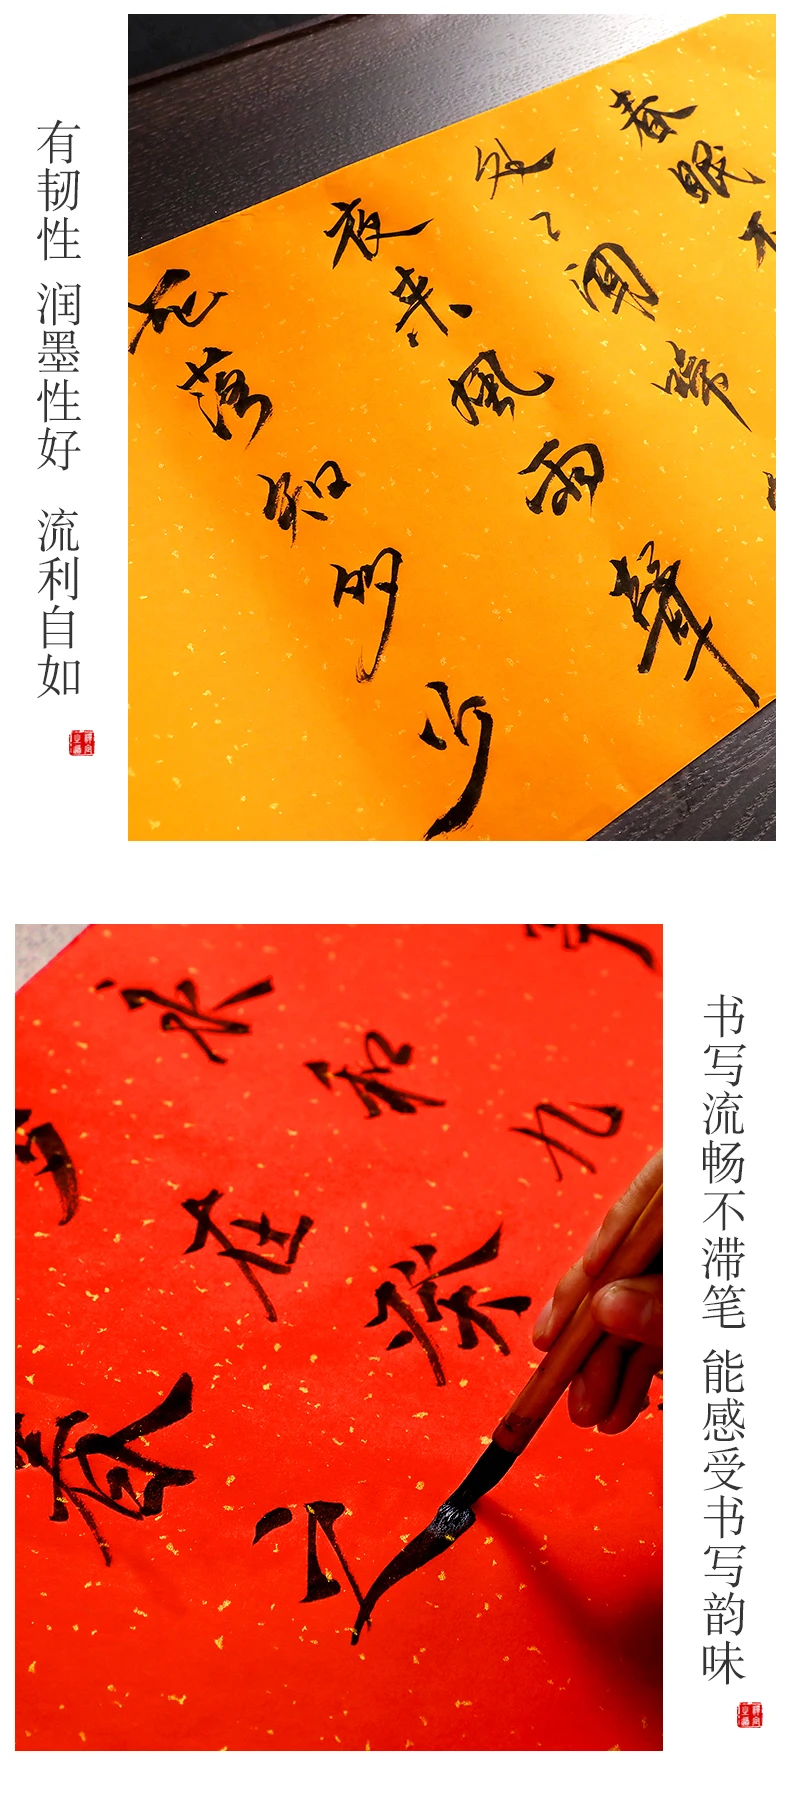 有韧性 润墨性好 流利自如
春眠不
处々闻啼
夜来風雨聲
花落知多少
书写流畅不滞笔 能感受书写韵味
永和九
在癸